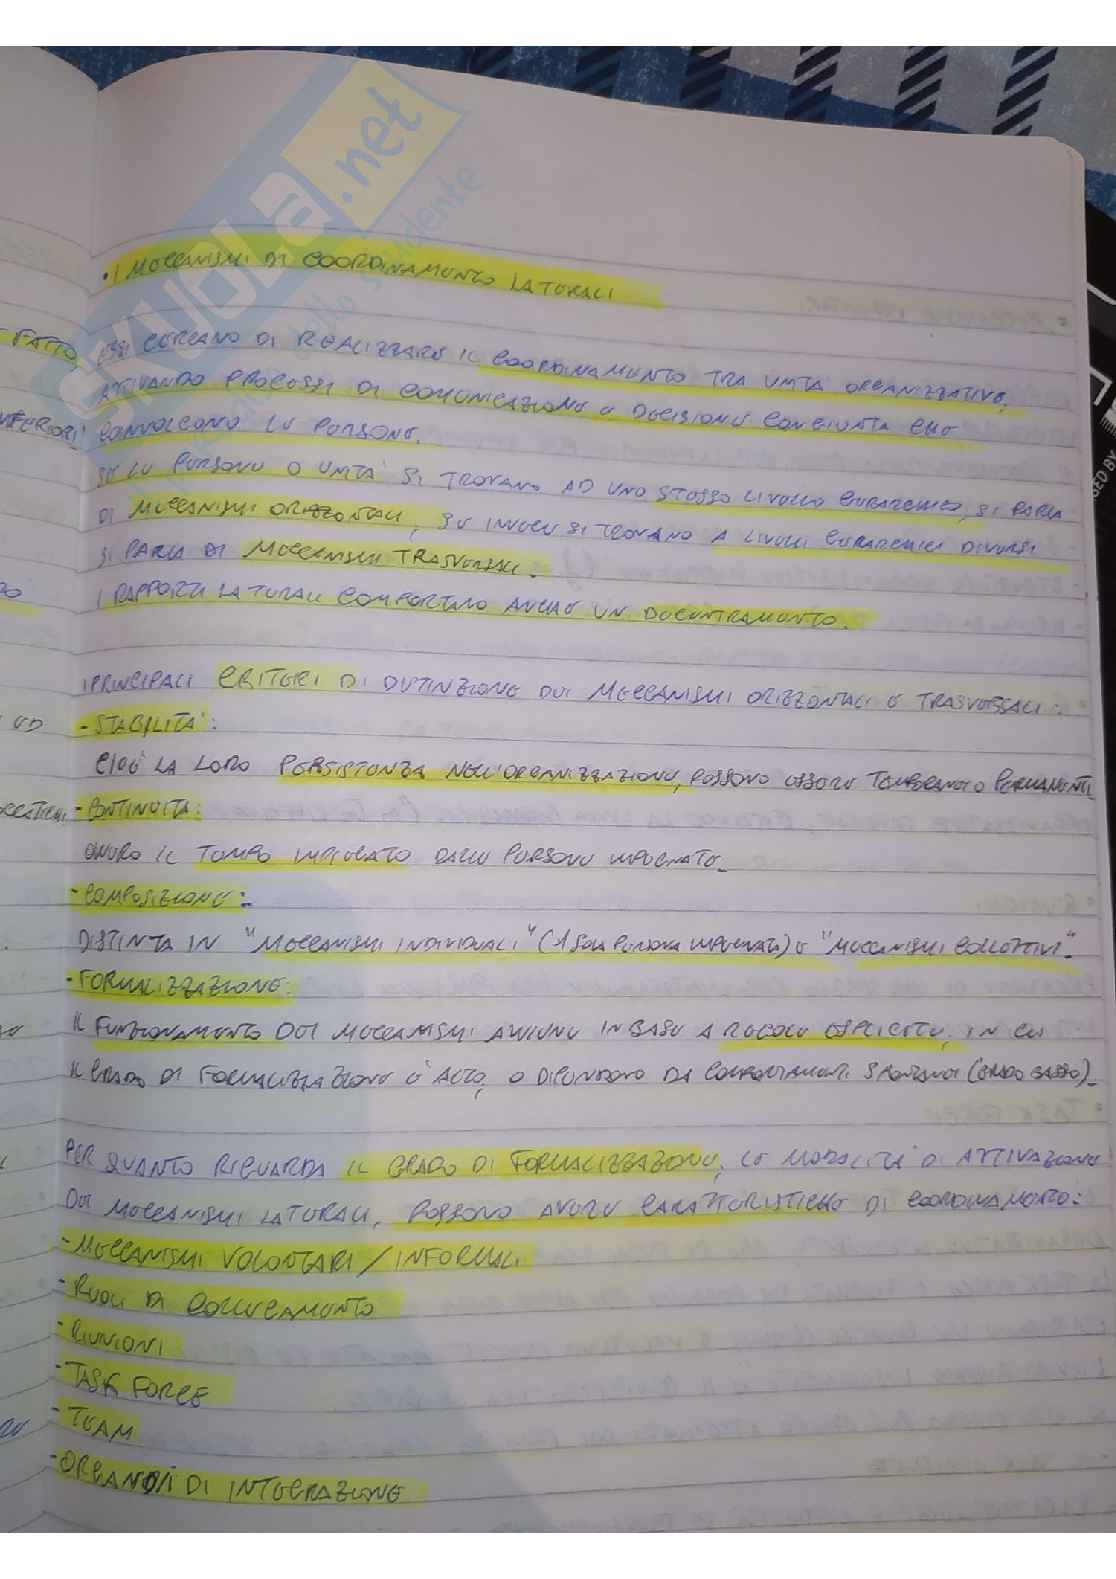 SKUOLA.net
• I MECCANISMI DI COORDINAMENTO LATERALI
FATTO
ESSI CERCANO DI REALIZZARE IL COORDINAMENTO TRA UNITÀ ORGANIZZATIVE,
ATTIVANDO PROCESSI DI COMUNICAZIONE E DECISIONE CONGIUNTA CHE
COINVOLGONO LE PERSONE.
SE LE PERSONE O UNITÀ SI TROVANO AD UNO STESSO LIVELLO GERARCHICO, SI PARLA
DI MECCANISMI ORIZZONTALI, SE INVECE SI TROVANO A LIVELLI GERARCHICI DIVERSI
SI PARLA DI MECCANISMI TRASVERSALI.
I RAPPORTI LATERALI COMPORTANO ANCHE UN DECENTRAMENTO.
I PRINCIPALI CRITERI DI DISTINZIONE DEI MECCANISMI ORIZZONTALI E TRASVERSALI:
- STABILITÀ:
CIOÈ LA LORO PERSISTENZA NELL'ORGANIZZAZIONE, POSSONO ESSERE TEMPORANEI O PERMANENTI
- CONTINUITÀ:
OVVERO IL TEMPO IMPIEGATO DALLE PERSONE IMPEGNATE.
- COMPOSIZIONE:
DISTINTA IN "MECCANISMI INDIVIDUALI" (1 SOLA PERSONA IMPEGNATA) E "MECCANISMI COLLETTIVI".
- FORMALIZZAZIONE:
IL FUNZIONAMENTO DEI MECCANISMI AVVIENE IN BASE A REGOLE ESPLICITE, IN CUI
IL GRADO DI FORMALIZZAZIONE È ALTO, O DIPENDONO DA COMPORTAMENTI SPONTANEI (GRADO BASSO).
PER QUANTO RIGUARDA IL GRADO DI FORMALIZZAZIONE, LE MODALITÀ DI ATTIVAZIONE
DEI MECCANISMI LATERALI, POSSONO AVERE CARATTERISTICHE DI COORDINAMENTO:
- MECCANISMI VOLONTARI / INFORMALI
- RUOLI DI COLLEGAMENTO
- RIUNIONI
- TASK FORCE
- TEAM
- ORGANI DI INTEGRAZIONE